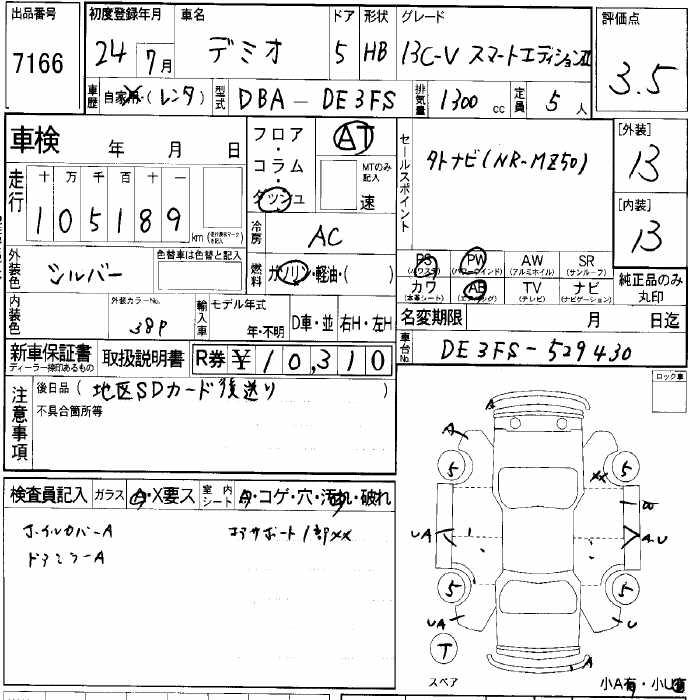 出品番号 初度登録年月 車名 ドア 形状 グレード 評価点
7166 24 7月 デミオ 5 HB 13C-V スマートエディションII 3.5
車歴 自家用・(レンタ) 型式 DBA-DE3FS 排気量 1300 cc 定員 5人
車検 年 月 日
フロア・コラム・ダッシュ AT MTのみ記入 速
セールスポイント
外ナビ(NR-MZ50)
[外装] 13
[内装] 13
走行 十 万 千 百 十 一
105189 km
冷房 AC
外装色 シルバー 色替車は色替と記入
燃料 ガソリン・軽油・( )
PS (パワステ) PW (パワーウインド) AW (アルミホイル) SR (サンルーフ)
カワ (本革シート) AB (エアバッグ) TV (テレビ) ナビ (ナビゲーション)
純正品のみ丸印
内装色 外装カラーNo. 38P 輸入車 モデル年式 年・不明 D車・並 右H・左H
名変期限 月 日迄
新車保証書 ディーラー捺印あるもの 取扱説明書 R券 ¥10,310
車台No. DE3FS-529430
注意事項 後日品 ( 地区SDカード後送り )
不具合箇所等
ロック車
検査員記入 ガラス A・X要ス 室内シート A・コゲ・穴・汚れ・破れ
ホイルカバーA コアサポート1部XX
ドアミラーA
A
A
5 5
XX
UA A.U
5 5
UA U
T A
スペア 小A有・小U有